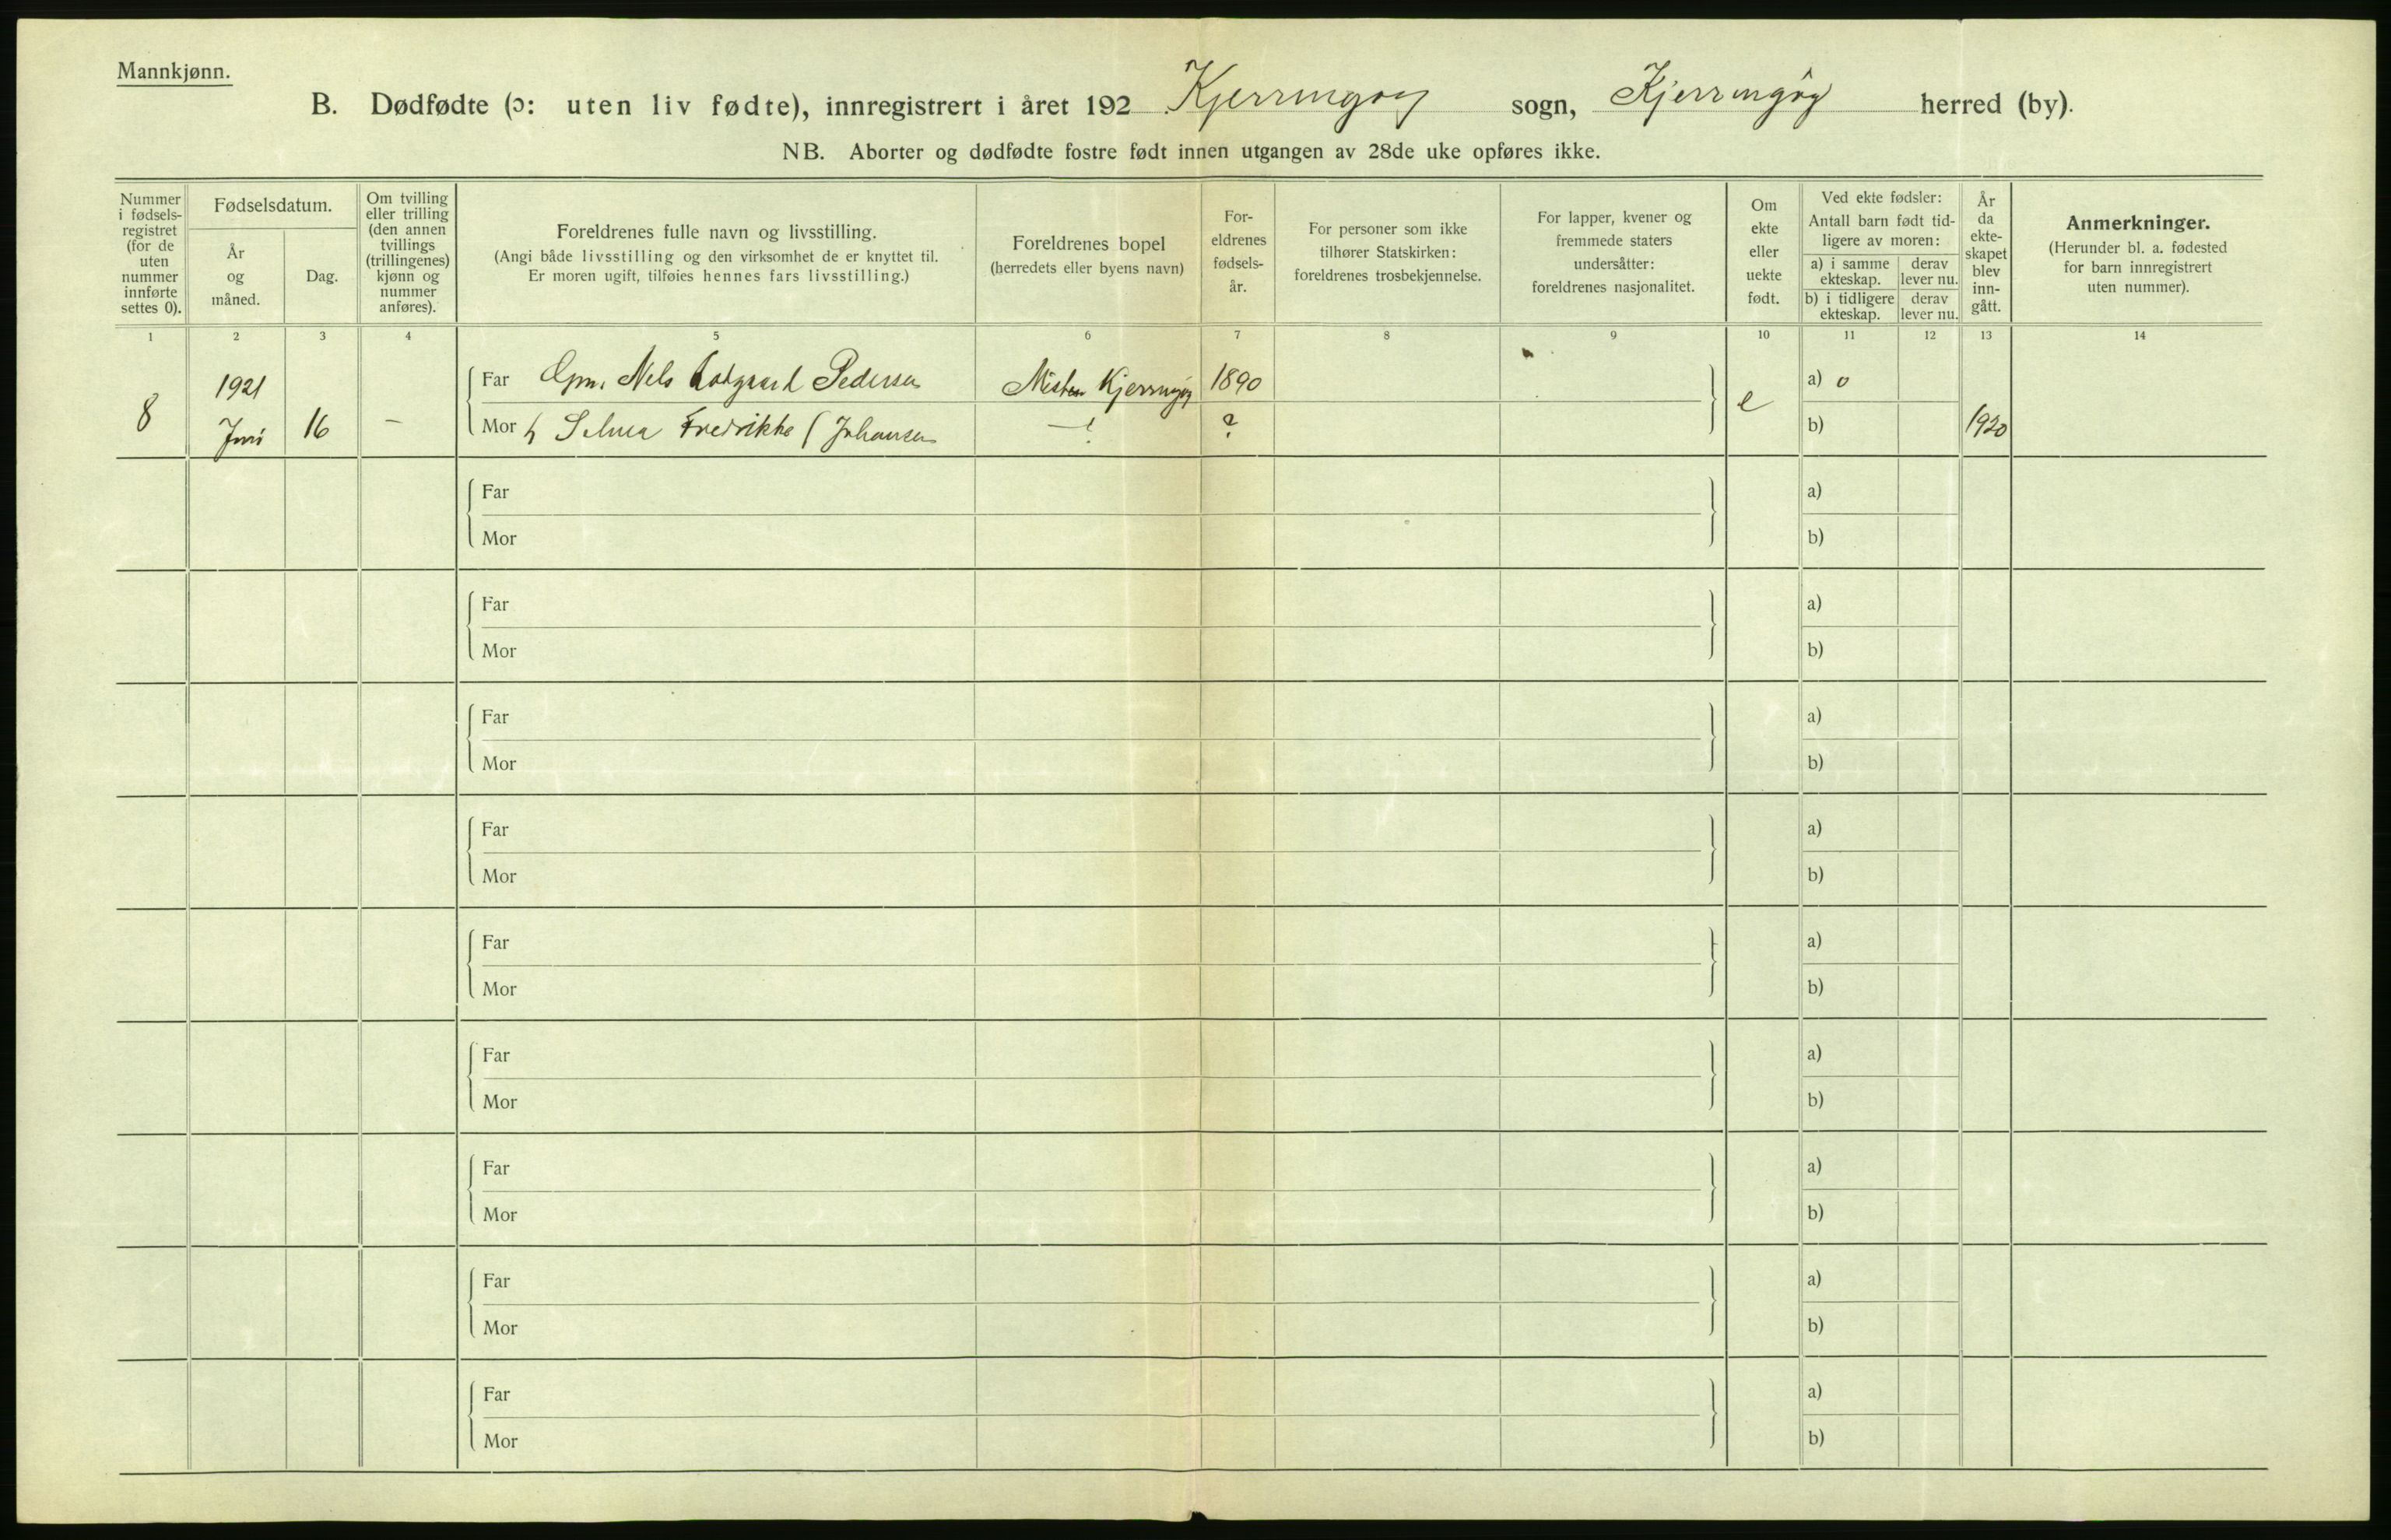 Mannkjønn.
B. Dødfødte (ɔ: uten liv fødte), innregistrert i året 192 Kjerringøy sogn, Kjerringøy herred (by).
NB. Aborter og dødfødte fostre født innen utgangen av 28de uke opføres ikke.
Nummer i fødselsregistret (for de uten nummer innførte settes 0).
Fødselsdatum.
År og måned.
Dag.
Om tvilling eller trilling (den annen tvillings (trillingenes) kjønn og nummer anføres).
Foreldrenes fulle navn og livsstilling.
(Angi både livsstilling og den virksomhet de er knyttet til.
Er moren ugift, tilføies hennes fars livsstilling.)
Foreldrenes bopel
(herredets eller byens navn)
Foreldrenes fødselsår.
For personer som ikke tilhører Statskirken: foreldrenes trosbekjennelse.
For lapper, kvener og fremmede staters undersåtter: foreldrenes nasjonalitet.
Om ekte eller uekte født.
Ved ekte fødsler:
Antall barn født tidligere av moren:
a) i samme ekteskap.
derav lever nu.
b) i tidligere ekteskap.
derav lever nu.
År da ekteskapet blev inngått.
Anmerkninger.
(Herunder bl. a. fødested for barn innregistrert uten nummer).
1 2 3 4 5 6 7 8 9 10 11 12 13 14
8 1921 Juni 16 –
Far Gpm. Nels Pedersen Misten Kjerringøy 1890 e a) o
Mor h Selma Fredrikke f Johansen –"– ? b) 1920
Far a)
Mor b)
Far a)
Mor b)
Far a)
Mor b)
Far a)
Mor b)
Far a)
Mor b)
Far a)
Mor b)
Far a)
Mor b)
Far a)
Mor b)
Far a)
Mor b)